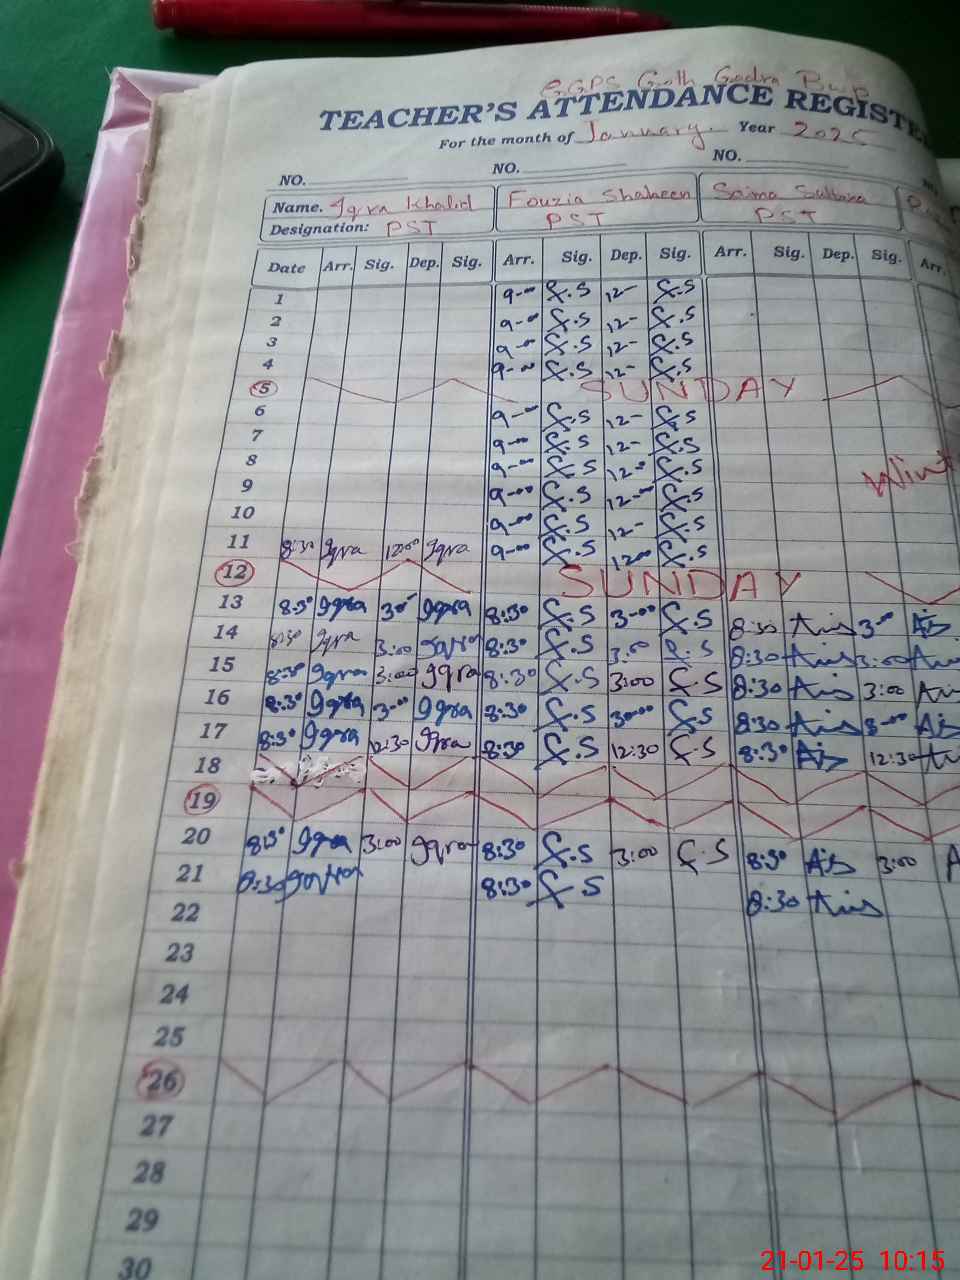 GGPS Goth Godra Bwp
TEACHER'S ATTENDANCE REGISTE
For the month of January. Year 2025
NO. NO. NO.
Name. Iqra Khalid Fouzia Shaheen Saima Sultana
Designation: PST PST PST
Date Arr. Sig. Dep. Sig. Arr. Sig. Dep. Sig. Arr. Sig. Dep. Sig. Arr.
1 9-00 F.S 12- F.S
2 9-00 F.S 12- F.S
3 9-00 F.S 12- F.S
4 9-00 F.S 12- F.S
5 SUNDAY
6 9-00 F.S 12- F.S
7 9-00 F.S 12- F.S
8 9-00 F.S 12-00 F.S
9 9-00 F.S 12-00 F.S
10 9-00 F.S 12- F.S
11 8:30 Iqra 12:00 Iqra 9-00 F.S 12-00 F.S
12 SUNDAY
13 8:30 Iqra 3:00 Iqra 8:30 F.S 3-00 F.S 8:30 3-00
14 8:30 Iqra 3:00 Iqra 8:30 F.S 3:00 F.S 8:30 3:00
15 8:30 Iqra 3:00 Iqra 8:30 F.S 3:00 F.S 8:30 3:00
16 8:30 Iqra 3-00 Iqra 8:30 F.S 3-00 F.S 8:30 3-00
17 8:30 Iqra 12:30 Iqra 8:30 F.S 12:30 F.S 8:30 12:30
18
19
20 8:30 Iqra 3:00 Iqra 8:30 F.S 3:00 F.S 8:30 3:00
21 8:30 Iqra 8:30 F.S 8:30
22
23
24
25
26
27
28
29
30
21-01-25 10:15